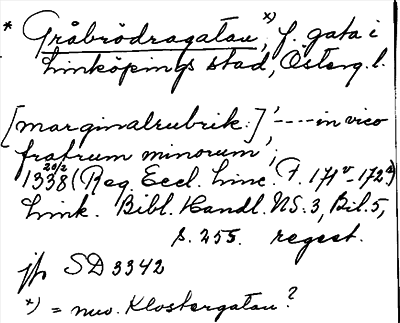 * Gråbrödragatan *), f. gata i
Linköpings stad, Österg. l.
[marginalrubrik:] '----in vico
fratrum minorum',
1338 20/2 (Reg. Eccl. Linc. F. 171v-172r)
Link. Bibl. Handl. NS. 3, Bil. 5,
s. 255. regest.
jfr SD 3342
*) = nuv. Klostergatan?